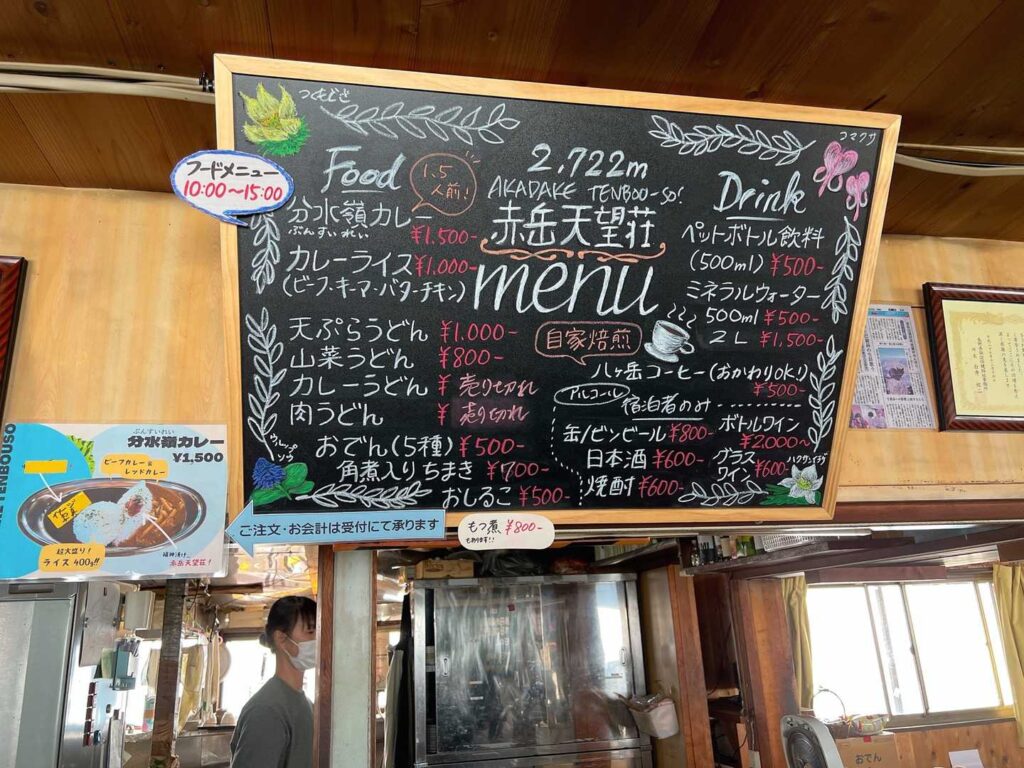 つくもぐさ
コマクサ
フードメニュー
10:00～15:00
Food
1.5
人前!
2,722m
AKADAKE TENBOO-SO!
赤岳天望荘
menu
分水嶺カレー
ぶんすいれい
¥1.500-
カレーライス ¥1.000-
(ビーフ・キーマ・バターチキン)
天ぷらうどん ¥1.000-
山菜うどん ¥800-
カレーうどん ¥ 売り切れ
肉うどん ¥ 売り切れ
おでん(5種) ¥500-
角煮入りちまき ¥700-
おしるこ ¥500-
ウルップソウ
Drink
ペットボトル飲料
(500ml) ¥500-
ミネラルウォーター
500ml ¥500-
2L ¥1,500-
自家焙煎
八ヶ岳コーヒー(おかわりOK!)
¥500-
アルコール
宿泊者のみ
缶/ビンビール ¥800-
日本酒 ¥600-
焼酎 ¥600-
ボトルワイン
¥2000～
グラス
ワイン ¥600-
ハクサンイチゲ
もつ煮 ¥800-
もあります!!
ご注文・お会計は受付にて承ります
TENBOUSO
ぶんすいれい
分水嶺カレー
¥1,500
ビーフカレー&
レッドカレー
超大盛り!
ライス400g!!
福神漬け
赤岳天望荘!
おでん